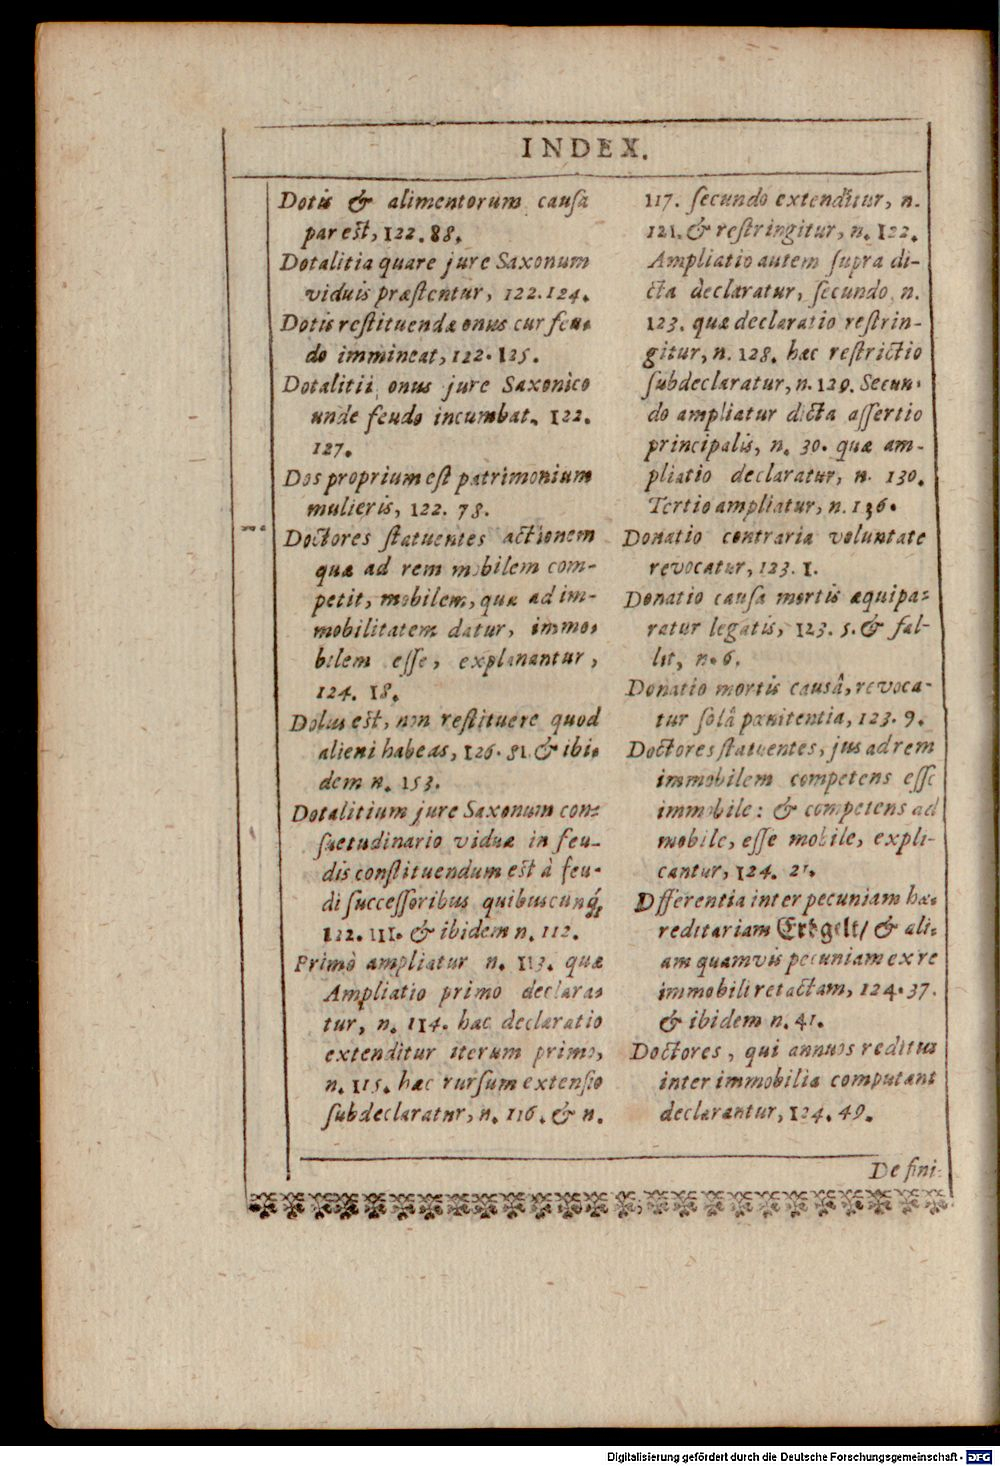 INDEX.
Dotis & alimentorum causa
par est, 122. 88.
Dotalitia quare jure Saxonum
viduis præstentur, 122. 124.
Dotis restituendæ onus cur feu-
do immineat, 122. 125.
Dotalitii onus jure Saxonico
unde feudo incumbat, 122.
127.
Dos proprium est patrimonium
mulieris, 122. 78.
Doctores statuentes actionem
quæ ad rem mobilem com-
petit, mobilem, quæ ad im-
mobilitatem datur, immo-
bilem esse, explanantur,
124. 18.
Dolus est, non restituere quod
alieni habeas, 126. 51. & ibi-
dem n. 153.
Dotalitium jure Saxonum con-
suetudinario viduæ in feu-
dis constituendum est à feu-
di successoribus quibuscunq́;
122. 111. & ibidem n. 112.
Primò ampliatur n. 113. quæ
Ampliatio primo declara-
tur, n. 114. hac declaratio
extenditur iterum primo,
n. 115. hæc rursum extensio
subdeclaratur, n. 116. & n.
117. secundo extenditur, n.
121. & restringitur, n. 122.
Ampliatio autem supra di-
cta declaratur, secundo n.
123. quæ declaratio restrin-
gitur, n. 128. hæc restrictio
subdeclaratur, n. 129. Secun-
do ampliatur dicta assertio
principalis, n. 30. quæ am-
pliatio declaratur, n. 130.
Tertio ampliatur, n. 136.
Donatio contraria voluntate
revocatur, 123. 1.
Donatio causa mortis æquipa-
ratur legatis, 123. 5. & fal-
lit, n. 6.
Donatio mortis causâ, revoca-
tur solâ pænitentia, 123. 9.
Doctores statuentes, jus ad rem
immobilem competens esse
immobile: & competens ad
mobile, esse mobile, expli-
cantur, 124. 21.
Dfferentia inter pecuniam hæ-
reditariam Erbgelt/ & ali-
am quamvis pecuniam ex re
immobili retactam, 124. 37.
& ibidem n. 41.
Doctores, qui annuos reditus
inter immobilia computant
declarantur, 124. 49.
Defini-
Digitalisierung gefördert durch die Deutsche Forschungsgemeinschaft - DFG